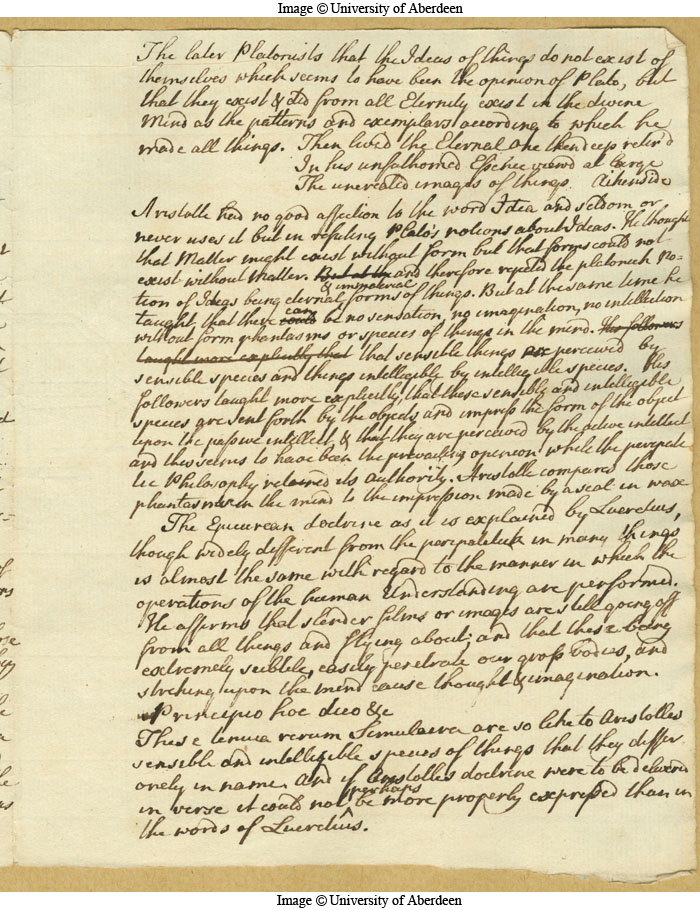 Image © University of Aberdeen
The later Platonists that the Ideas of things do not exist of
themselves which seems to have been the opinion of Plato, but
that they exist & did from all Eternity exist in the divine
Mind as the patterns and exemplars according to which he
made all things. Then lived the Eternal One then deep retir'd
In his unfathomed Essence viewd at large
The uncreated images of things. Akenside
Aristotle had no good affection to the word Idea and seldom or
never uses it but in refuting Plato's notions about Ideas. He thought
that Matter might exist without form but that forms could not
exist without Matter. But at the and therefore rejected the platonick No=
& immaterial
tion of Ideas being eternal forms of things. But at the same time he
can
taught that there could be no sensation, no imagination, no intellection
without form phantasms or species of things in the mind. His followers
taught more explicitly that that sensible things are perceived by
sensible species and things intelligible by intelligible species. His
followers taught more explicitly, that these sensible and intelligible
species are sent forth by the objects and impress the form of the object
upon the passive intellect, & that they are perceived by the active intellect
and this seems to have been the prevailing opinion while the peripate
tic Philosophy retained its authority. Aristotle compared those
phantasms in the mind to the impression made by a seal in wax
The Epicurean doctrine as it is explained by Lucretius,
though widely different from the peripatetick in many things
is almost the same with regard to the manner in which the
operations of the human Understanding are performed.
He affirms that slender films or images are still going off
from all things and flying about; and that these being
extremely subtile, easily penetrate our gross bodies, and
striking upon the mind cause thought & imagination.
Principio hoc dico &c
These tenuia rerum Simulacra are so like to Aristotles
sensible and intelligible species of things that they differ
onely in name. And if Aristotles doctrine were to be delivered
perhaps
in verse it could not be more properly expressed than in
the words of Lucretius.
Image © University of Aberdeen